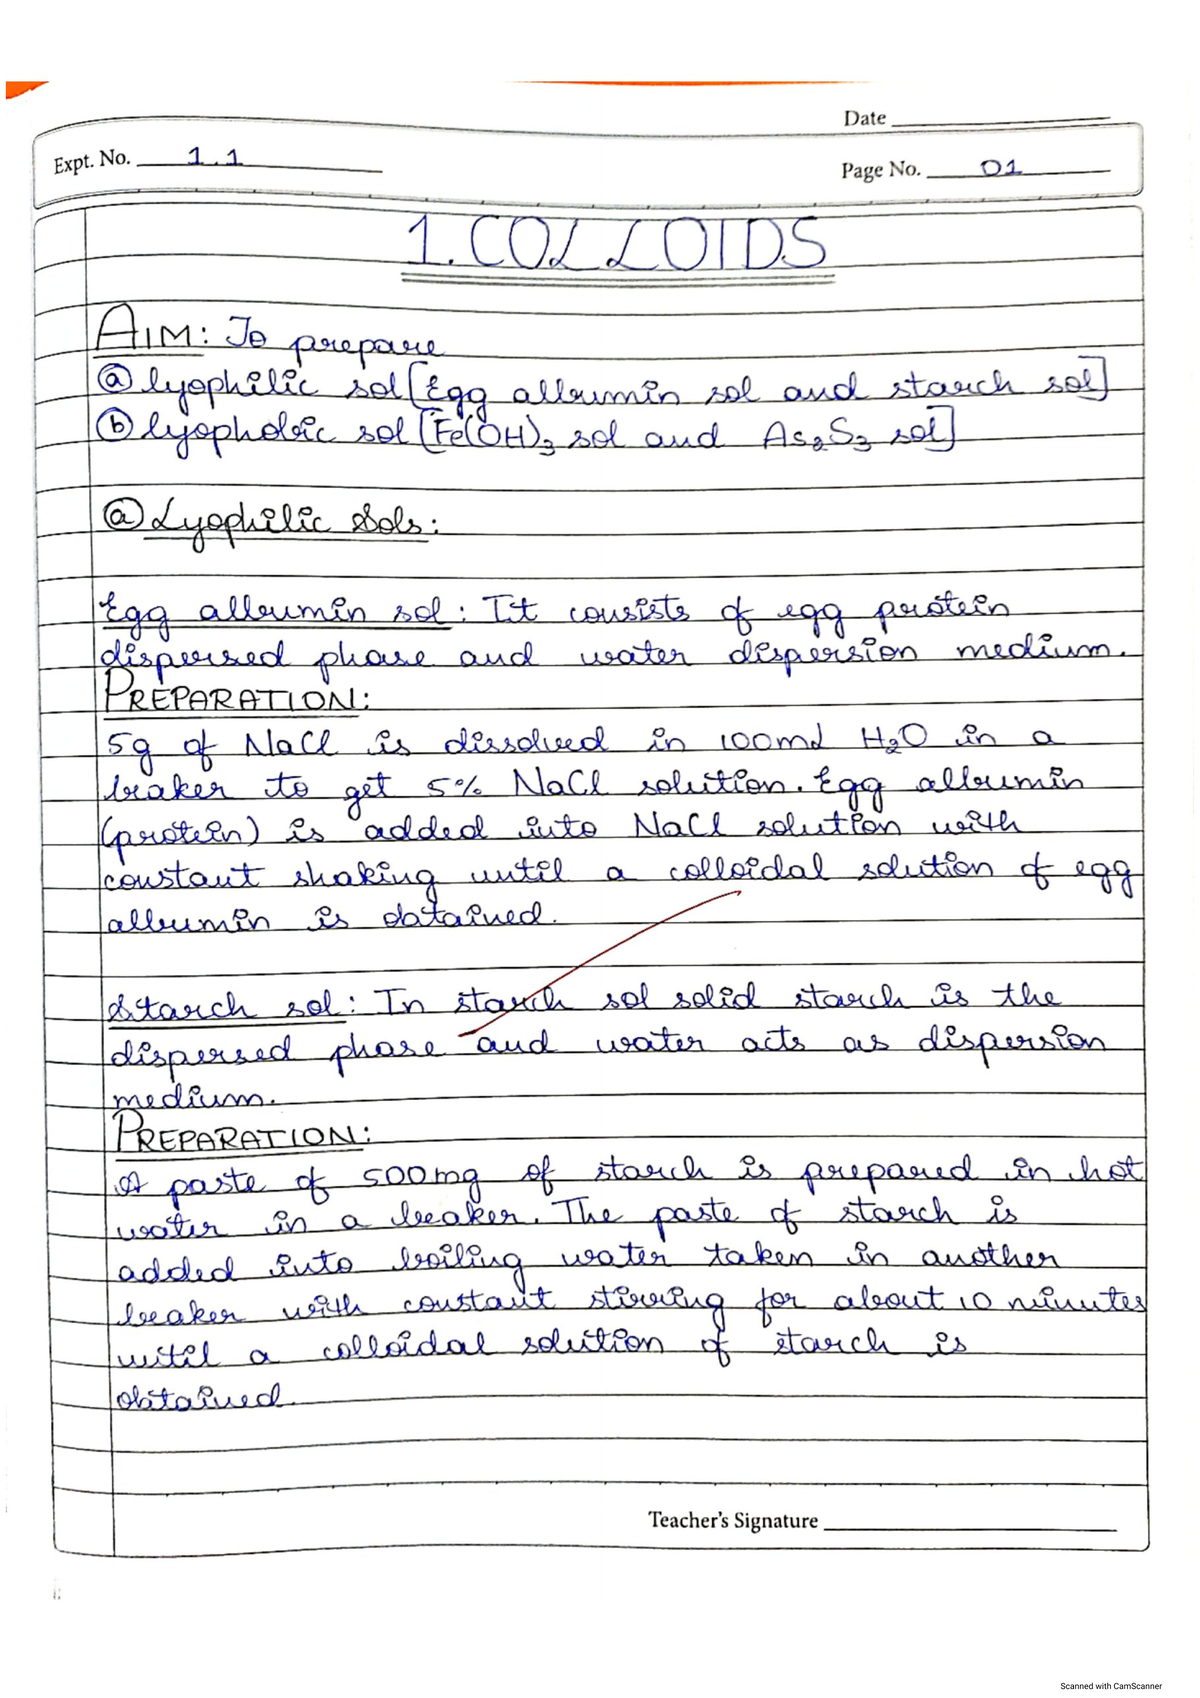 Date
Expt. No. 1.1
Page No. 01
1. COLLOIDS
AIM: To prepare
ⓐ lyophilic sol [Egg albumin sol and starch sol]
ⓑ lyophobic sol [Fe(OH)₃ sol and As₂S₃ sol]
ⓐ Lyophilic Sols:
Egg albumin sol: It consists of egg protein
dispersed phase and water dispersion medium.
PREPARATION:
5g of NaCl is dissolved in 100ml H₂O in a
beaker to get 5% NaCl solution. Egg albumin
(protein) is added into NaCl solution with
constant shaking until a colloidal solution of egg
albumin is obtained.
Starch sol: In starch sol solid starch is the
dispersed phase and water acts as dispersion
medium.
PREPARATION:
A paste of 500mg of starch is prepared in hot
water in a beaker. The paste of starch is
added into boiling water taken in another
beaker with constant stirring for about 10 minutes
until a colloidal solution of starch is
obtained.
Teacher's Signature
Scanned with CamScanner